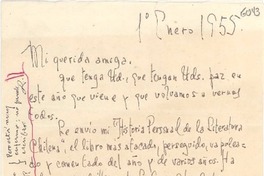 6043
1º Enero 1955
Mi querida amiga,
que tenga Ud., que tengan Uds. paz en
este año que viene y que volvamos a vernos
todos.
Le envío mi "Historia Personal de la Literatura
Chilena", el libro más atacado, perseguido, vapulea-
do y comentado del año y de varios años. Ha